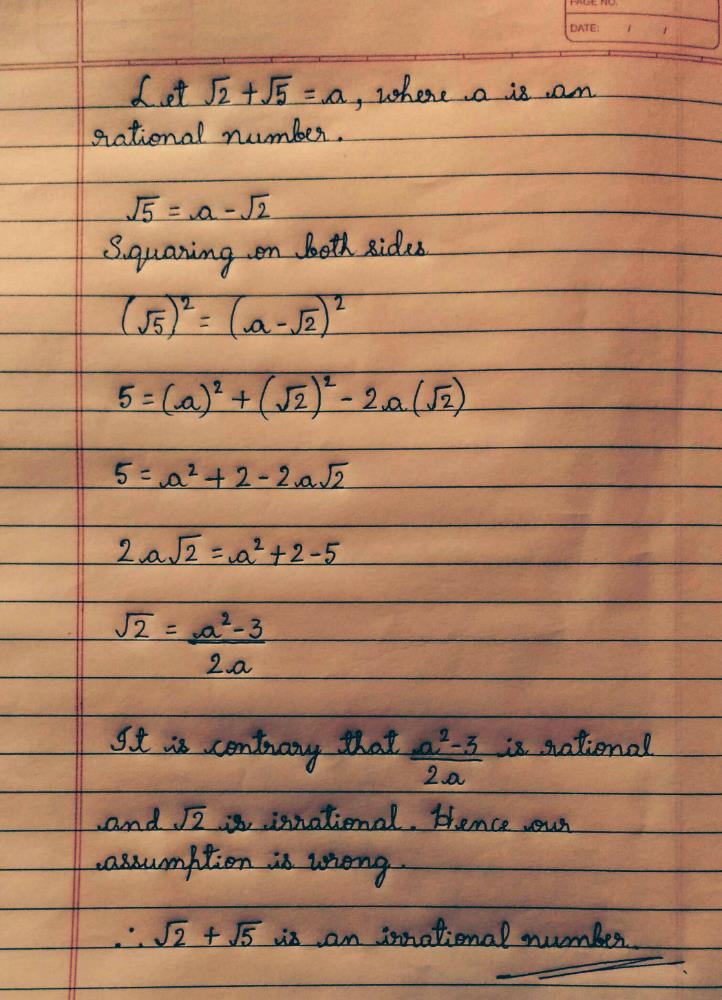 PAGE NO.
DATE: / /
Let √2 + √5 = a, where a is an
rational number.
√5 = a - √2
Squaring on both sides
(√5)² = (a - √2)²
5 = (a)² + (√2)² - 2a(√2)
5 = a² + 2 - 2a√2
2a√2 = a² + 2 - 5
√2 = a² - 3 / 2a
It is contrary that a² - 3 / 2a is rational
and √2 is irrational. Hence our
assumption is wrong.
∴ √2 + √5 is an irrational number.